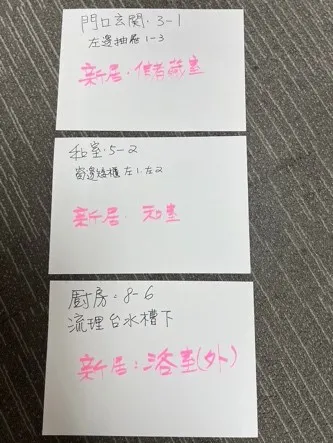 門口玄関·3-1
左邊抽屜1-3
新居·儲藏室
和室·5-2
窗邊矮櫃 左1·左2
新居· 和室
廚房:8-6
流理台水槽下
新居:浴室(外)